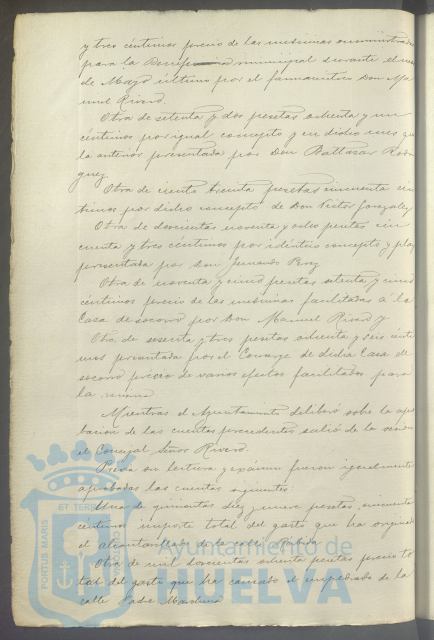 y tres céntimos precio de las medicinas suministradas
para la Beneficencia municipal durante el mes
de Mayo último por el farmacéutico Don Ma
nuel Rivero.
Otra de setenta y dos pesetas ochenta y un
céntimos por igual concepto y en dicho mes que
la anterior presentada por Don Baltasar Rodri
guez.
Otra de ciento treinta pesetas cincuenta cén
timos por dicho concepto de Don Victor Gonzalez
Otra de doscientas noventa y ocho pesetas cin
cuenta y tres céntimos por idéntico concepto y
presentada por Don Fernando Perez
Otra de noventa y cinco pesetas setenta y cinco
céntimos precio de las medicinas facilitadas á la
Casa de socorro por Don Manuel Rivero y
Otra de sesenta y tres pesetas ochenta y seis cénti
mos presentada por el Conserje de dicha Casa de
socorro precio de varios efectos facilitados para
la misma
Mientras el Ayuntamiento deliberó sobre la apro
bacion de las cuentas precedentes salió de la sesion
el Concejal Señor Rivero.
Previa su lectura y exámen fueron igualmente
aprobadas las cuentas siguientes
Una de quinientas diez y nueve pesetas cincuenta
céntimos importe total del gasto que ha originado
el alcantarillado de la calle Rábida
Otra de mil doscientas ochenta pesetas precio to
tal del gasto que ha causado el empedrado de la
calle Padre Marchena
ET TERRAE
PORTUS MARIS
CUSTODIA
Ayuntamiento de
HUELVA